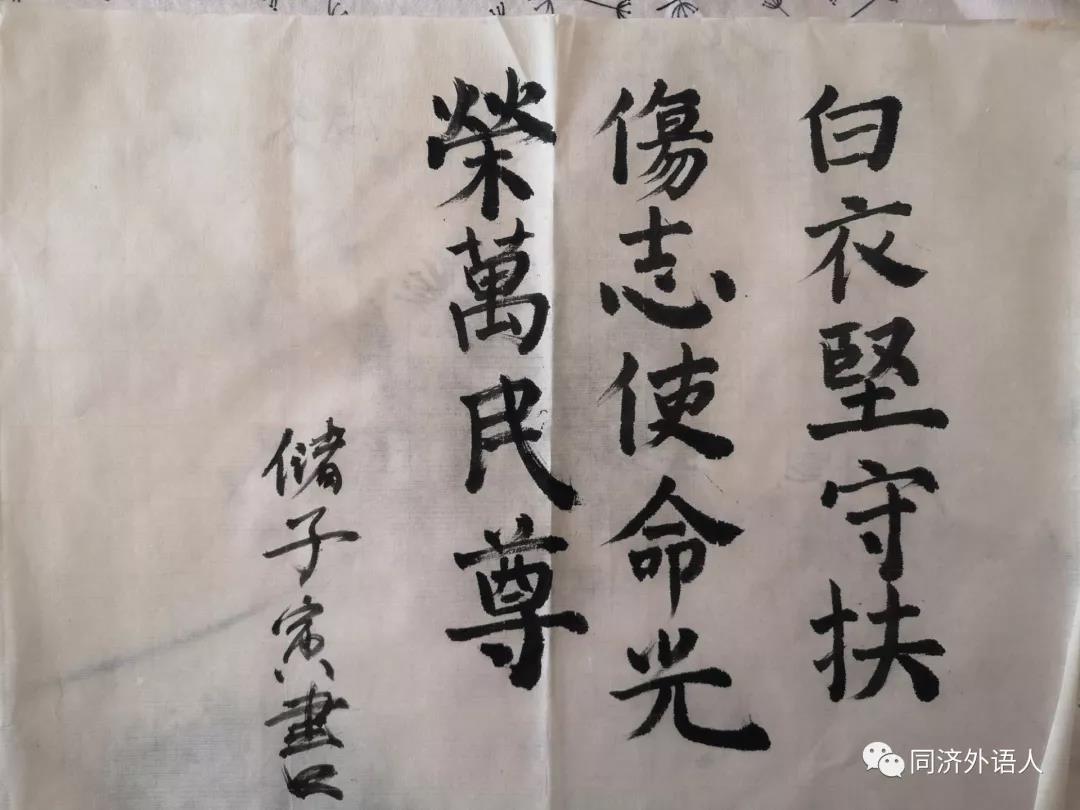 白衣堅守扶
傷志使命光
榮萬民尊
储子寅書
同济外语人